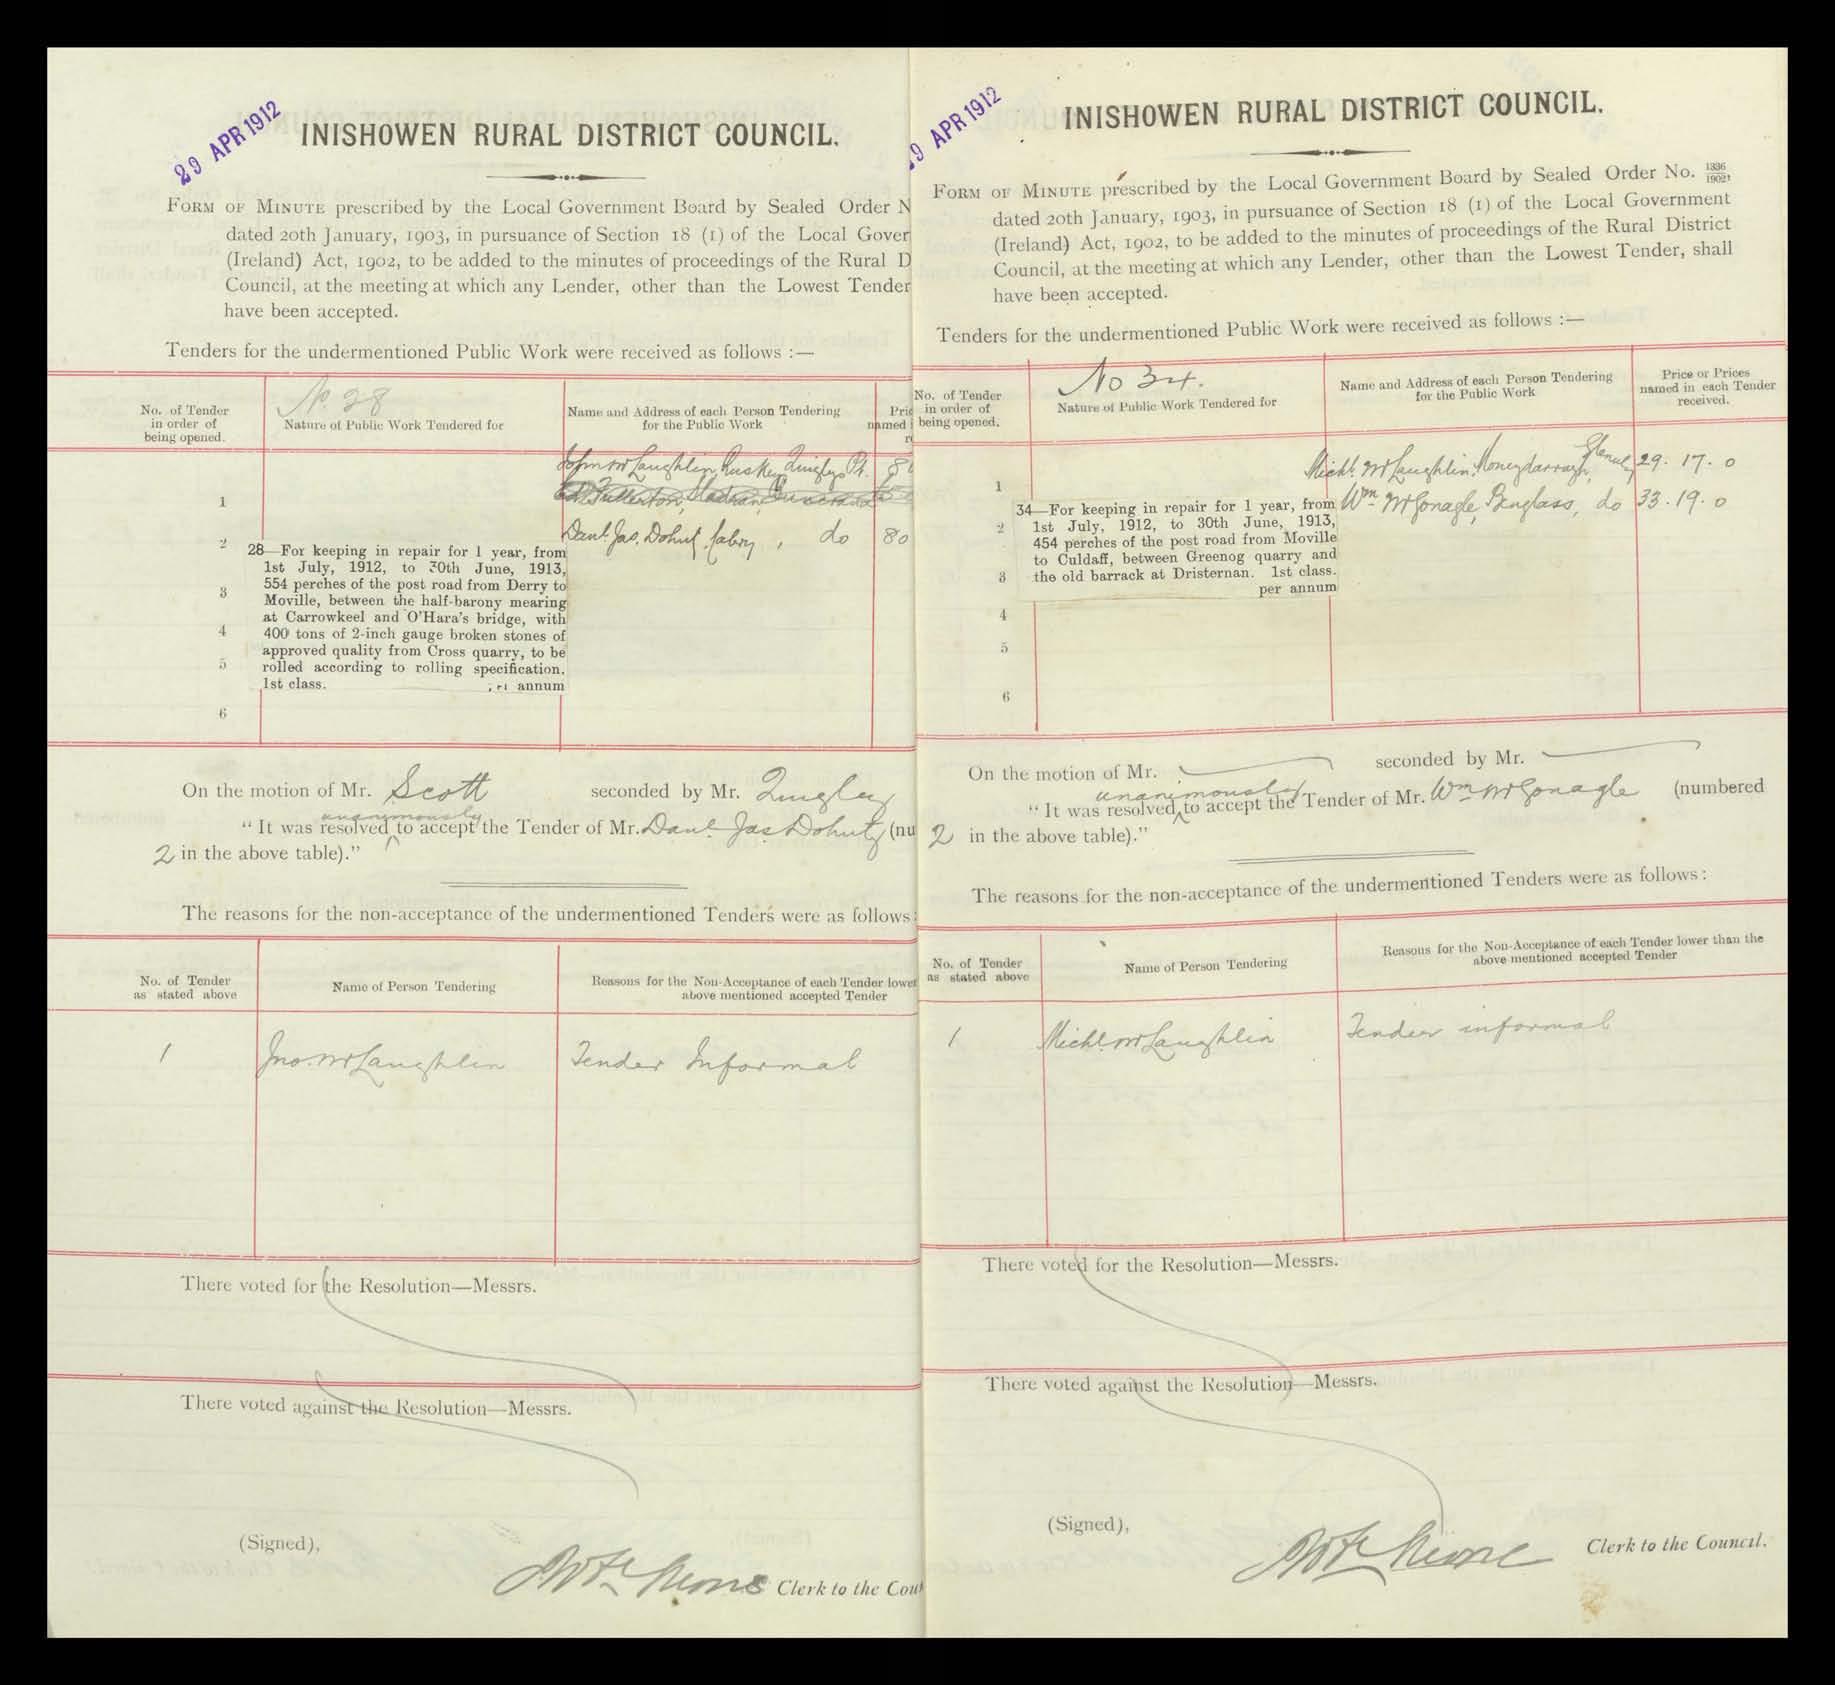 29 APR 1912
INISHOWEN RURAL DISTRICT COUNCIL.
FORM OF MINUTE prescribed by the Local Government Board by Sealed Order N
dated 20th January, 1903, in pursuance of Section 18 (1) of the Local Gover
(Ireland) Act, 1902, to be added to the minutes of proceedings of the Rural D
Council, at the meeting at which any Lender, other than the Lowest Tender
have been accepted.
Tenders for the undermentioned Public Work were received as follows :—
No. of Tender
in order of
being opened.
No. 28
Nature of Public Work Tendered for
Name and Address of each Person Tendering
for the Public Work
Pric
named
John McLaughlin, Ruskey, Quigleys Pt. 8
Fullerton,
1
Danl. Jas. Dohty, Cabry, do 80
2
28—For keeping in repair for 1 year, from
1st July, 1912, to 30th June, 1913,
554 perches of the post road from Derry to
Moville, between the half-barony mearing
at Carrowkeel and O'Hara's bridge, with
400 tons of 2-inch gauge broken stones of
approved quality from Cross quarry, to be
rolled according to rolling specification.
1st class. annum
3
4
5
6
On the motion of Mr. Scott seconded by Mr. Quigley
unanimously
"It was resolved ^ to accept the Tender of Mr. Danl. Jas Dohty (nu
2 in the above table)."
The reasons for the non-acceptance of the undermentioned Tenders were as follows:
No. of Tender
as stated above
Name of Person Tendering
Reasons for the Non-Acceptance of each Tender lower
above mentioned accepted Tender
1 Jno. McLaughlin Tender Informal
There voted for the Resolution—Messrs.
There voted against the Resolution—Messrs.
(Signed),
Clerk to the Coun
9 APR 1912
INISHOWEN RURAL DISTRICT COUNCIL.
FORM OF MINUTE prescribed by the Local Government Board by Sealed Order No. 1336/1902,
dated 20th January, 1903, in pursuance of Section 18 (1) of the Local Government
(Ireland) Act, 1902, to be added to the minutes of proceedings of the Rural District
Council, at the meeting at which any Lender, other than the Lowest Tender, shall
have been accepted.
Tenders for the undermentioned Public Work were received as follows :—
No. of Tender
in order of
being opened.
No 34.
Nature of Public Work Tendered for
Name and Address of each Person Tendering
for the Public Work
Price or Prices
named in each Tender
received.
1 Michl. McLaughlin, Moneydarragh, Gleneely 29. 17. 0
2 Wm. McGonagle, do 33. 19. 0
34—For keeping in repair for 1 year, from
1st July, 1912, to 30th June, 1913,
454 perches of the post road from Moville
to Culdaff, between Greenog quarry and
the old barrack at Dristernan. 1st class.
per annum
3
4
5
6
On the motion of Mr. seconded by Mr.
unanimously
"It was resolved ^ to accept the Tender of Mr. Wm McGonagle (numbered
2 in the above table)."
The reasons for the non-acceptance of the undermentioned Tenders were as follows:
No. of Tender
as stated above
Name of Person Tendering
Reasons for the Non-Acceptance of each Tender lower than the
above mentioned accepted Tender
1 Michl. McLaughlin Tender informal
There voted for the Resolution—Messrs.
There voted against the Resolution—Messrs.
(Signed),
Clerk to the Council.